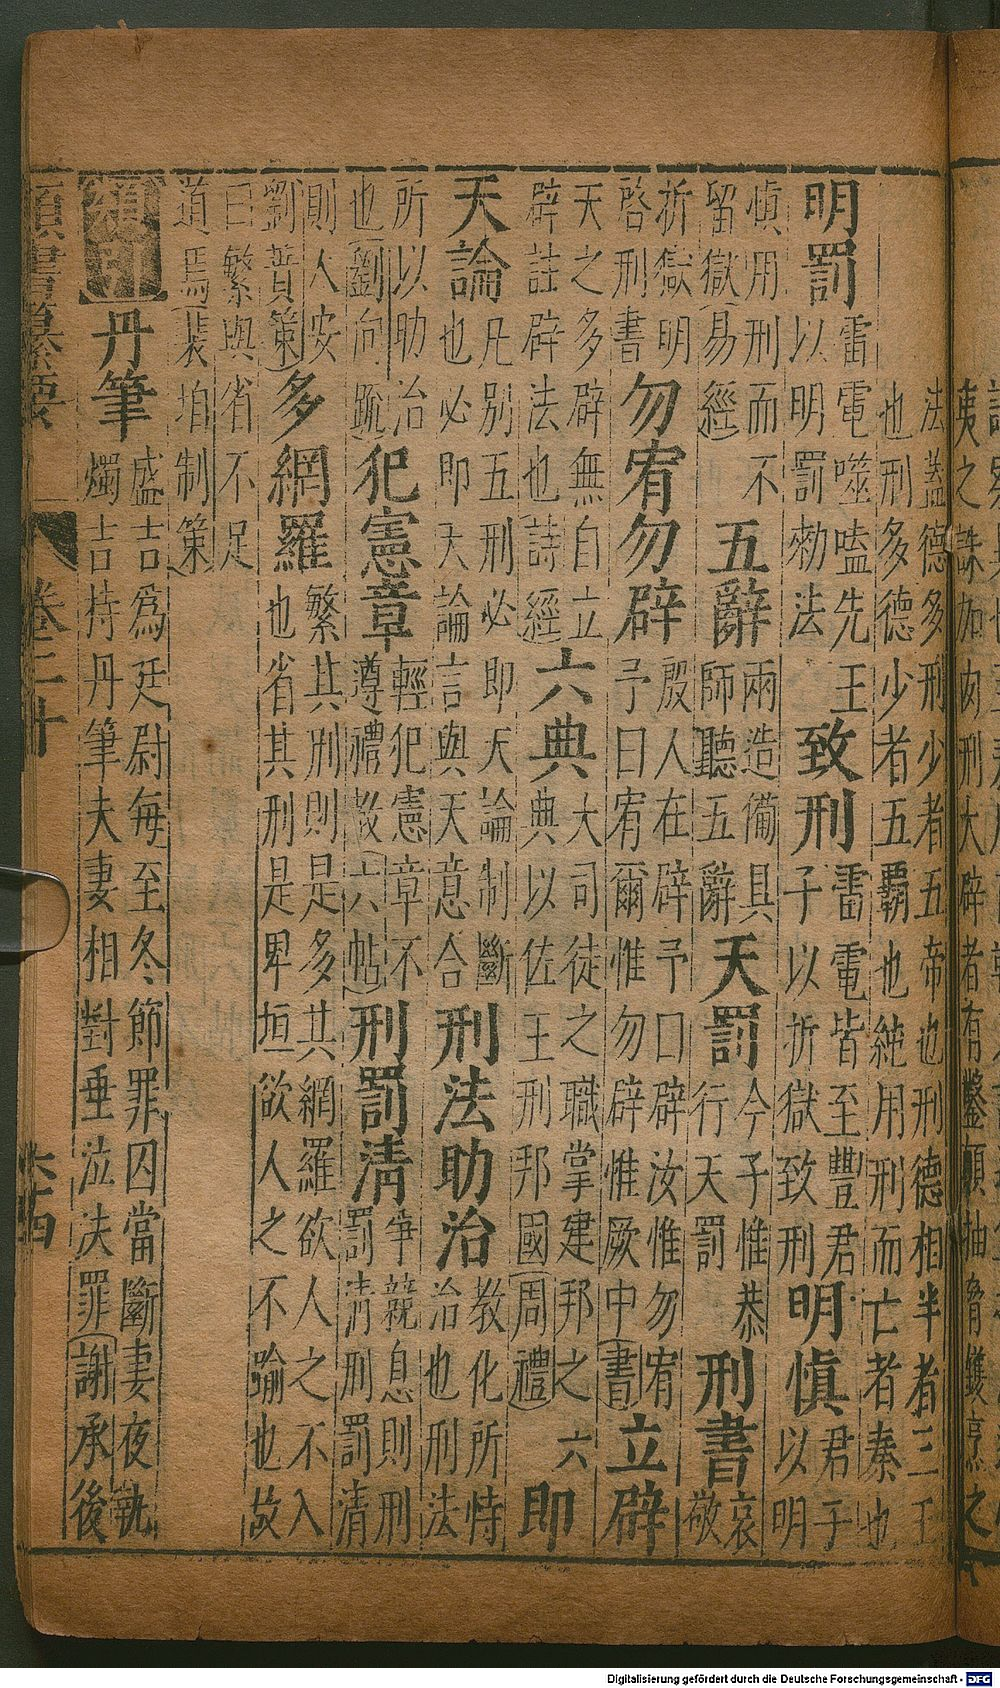 法蓋德多刑少者五帝也刑德相半者三王
也刑多德少者五霸也純用刑而亡者秦也
明罰
雷電噬嗑先王
以明罰勑法
致刑
雷電皆至豐君
子以折獄致刑
明慎
君子
以明
慎用刑而不
留獄(易經)
五辭
兩造備具
師聽五辭
天罰
今予惟恭
行天罰
刑書
哀
敬
折獄明
啓刑書
勿宥勿辟
殷人在辟予曰辟汝惟勿宥
予曰宥爾惟勿辟惟厥中(書)
立辟
天之多辟無自立
辟註辟法也(詩經)
六典
大司徒之職掌建邦之六
典以佐王刑邦國(周禮)
即
天論
凡別五刑必即天論制斷
也必即天論言與天意合
刑法助治
教化所恃
治也刑法
所以助治
也(劉向疏)
犯憲章
輕犯憲章不
遵禮教(六帖)
刑罰清
爭競息則刑
罰清刑罰清
則人安
劉蕡策)
多網羅
繁其刑則是多其網羅欲人之不入
也省其刑是卑垣欲人之不踰也故
曰繁與省不足
道焉(裴垍制策)
須知
丹筆
盛吉爲廷尉每至冬節罪囚當斷妻夜執
燭吉持丹筆夫妻相對垂泣決罪(謝承後
卷二十
六十四
Digitalisierung gefördert durch die Deutsche Forschungsgemeinschaft - DFG